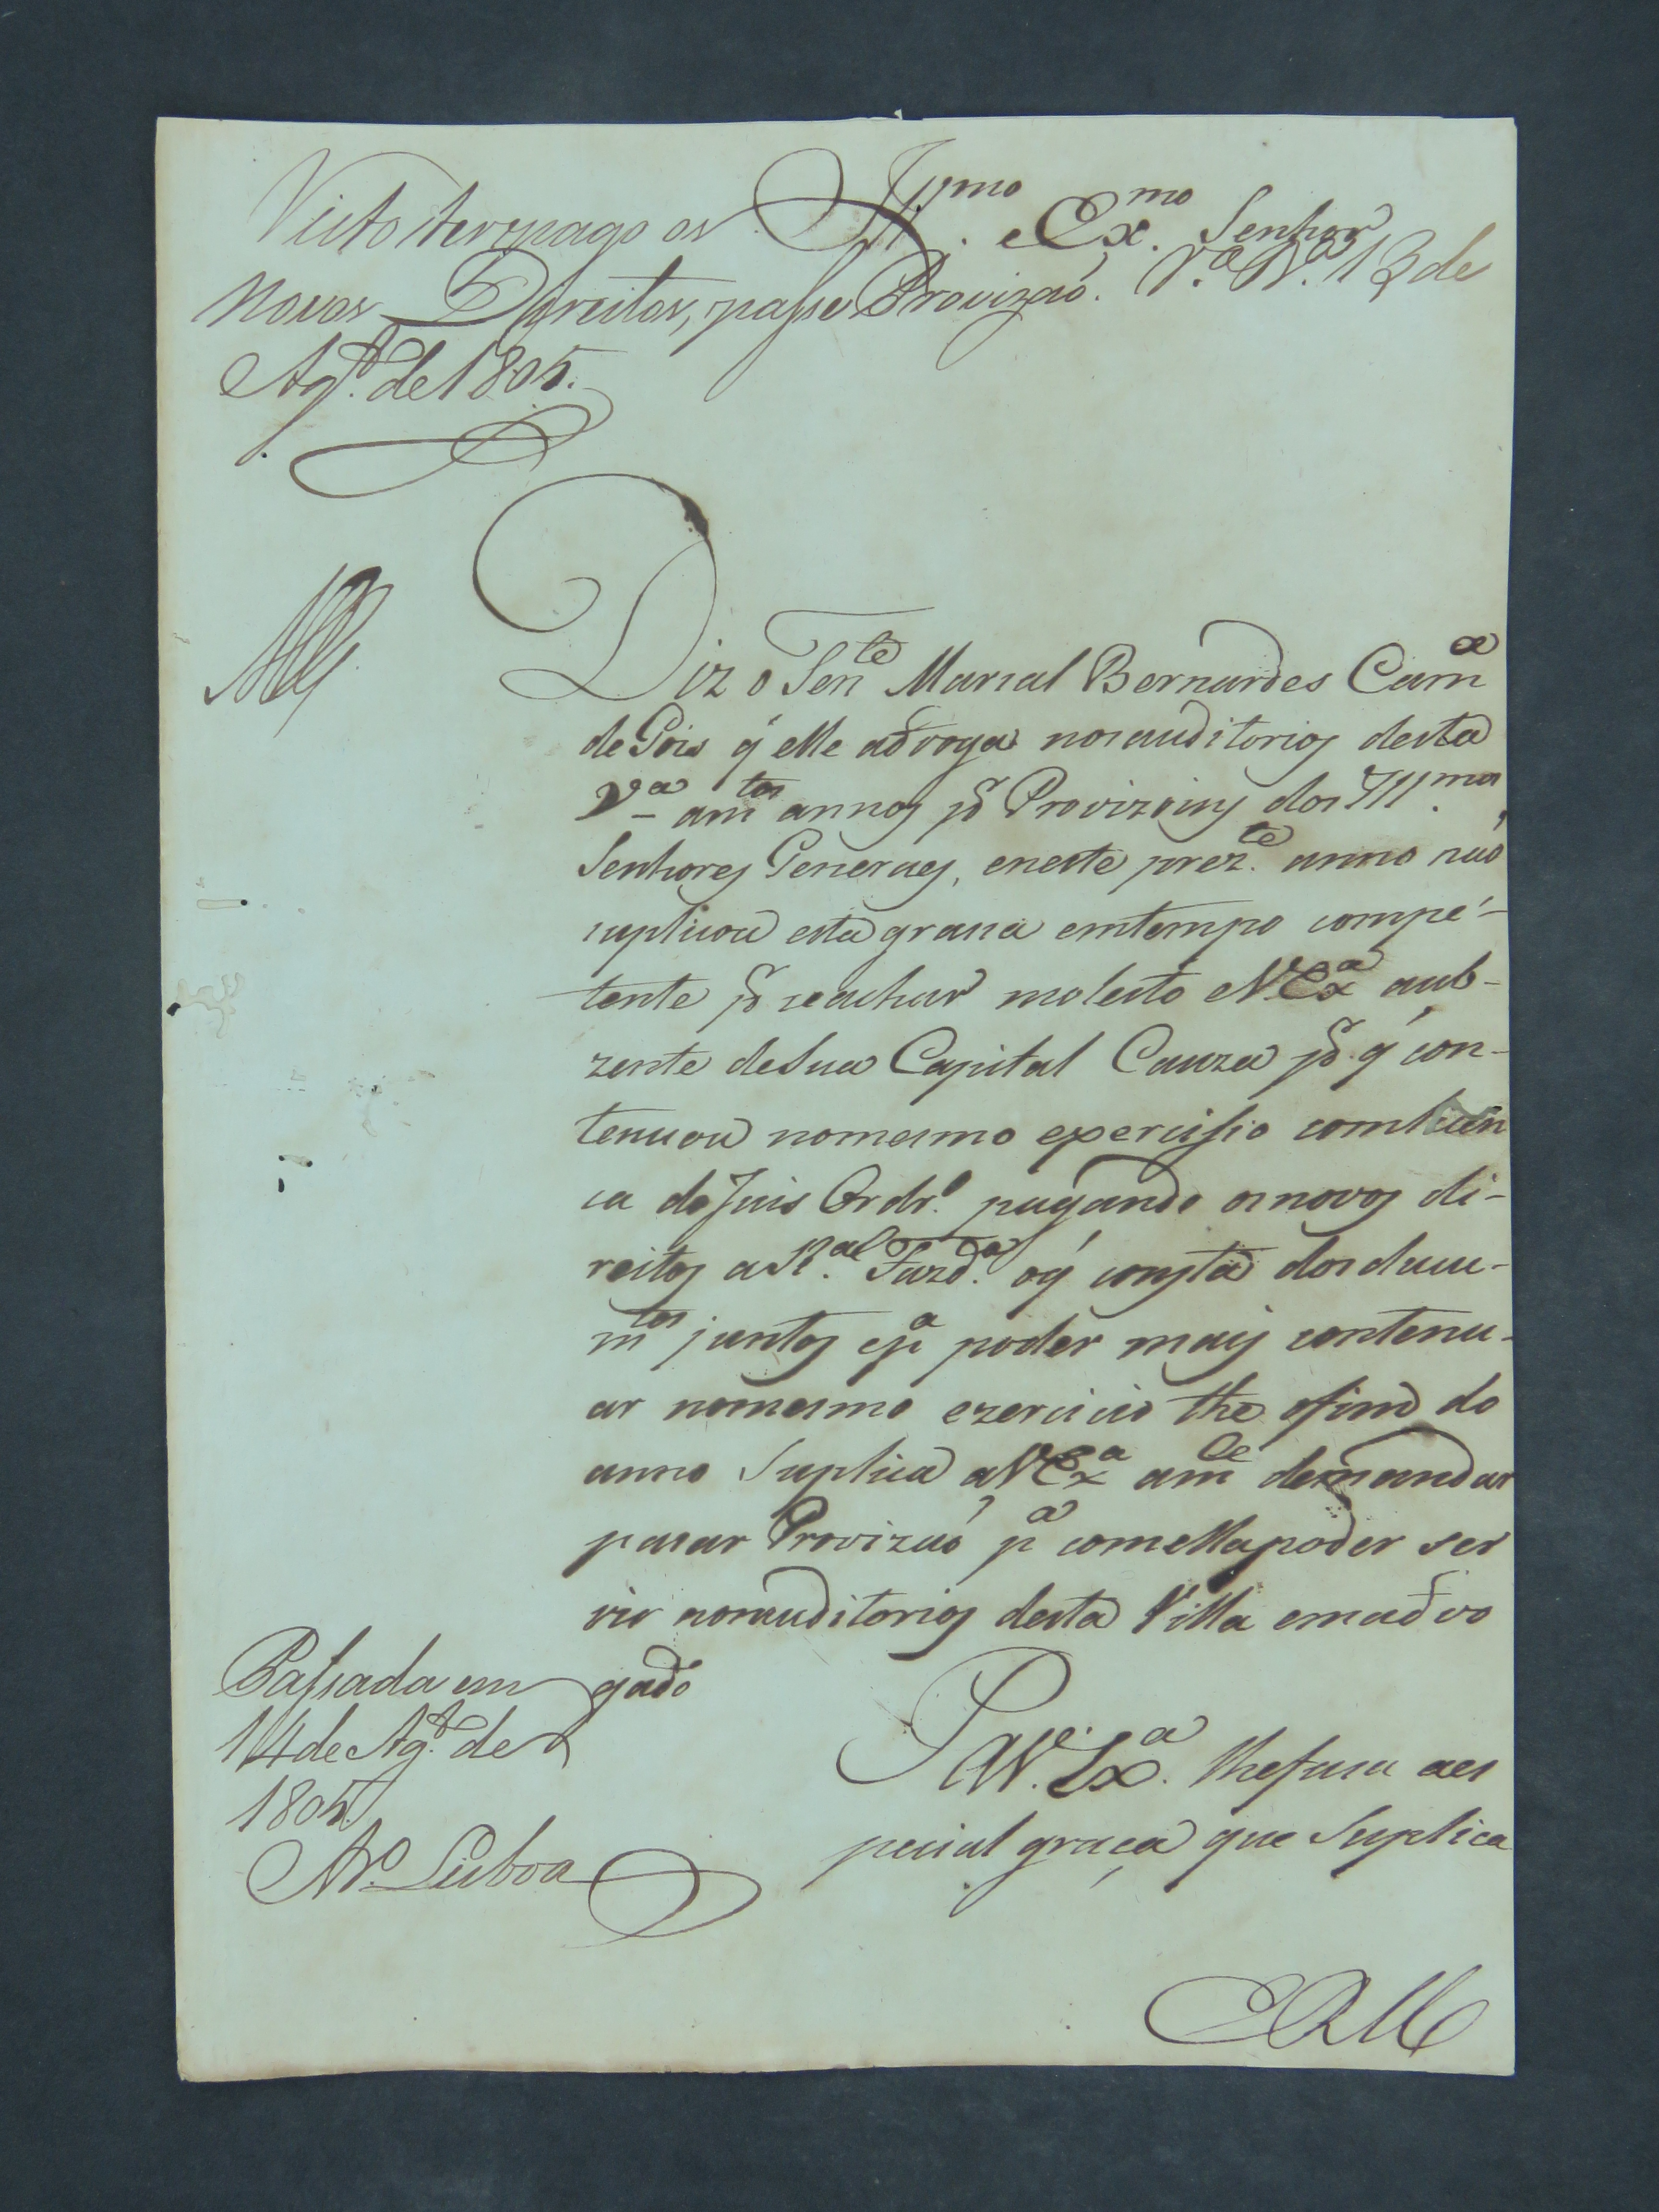 Illmo. e Exmo. Senhor
Visto ter pago os
Novos Direitos, passe Provizaó. Va. Ra. 13 de
Ago. de 1805.
Diz o Tente Marsal Bernardes Cama
de Gois q' elle advoga nos auditorios desta
Va amtos annos pr Provizoins dos Illmos
Senhores Generaes, eneste prezte. anno naó
suplicou esta grasa emtempo compe-
tente pr seachar molesto e V.Exa aub-
zente desua Capital Cauza pr q' con-
tenuou nomesmo exercissio comlisen
sa do Juis Ordro. pagando osnovos di-
reitos a Ral. Fazda. o q' consta dos ducu-
mtos juntos e pa poder mais contenu-
ar nomesmo ezercicio the ofim do
anno Suplica aV.Exa amce demandar
pasar Provizaó pa comella poder ser
vir nosauditorios desta Villa emadvo
gado
P. a V. Exa. lhefasa aes
pecial graça que Suplica
Passada em
14 de Ago. de
1805.
Lisboa
E R M